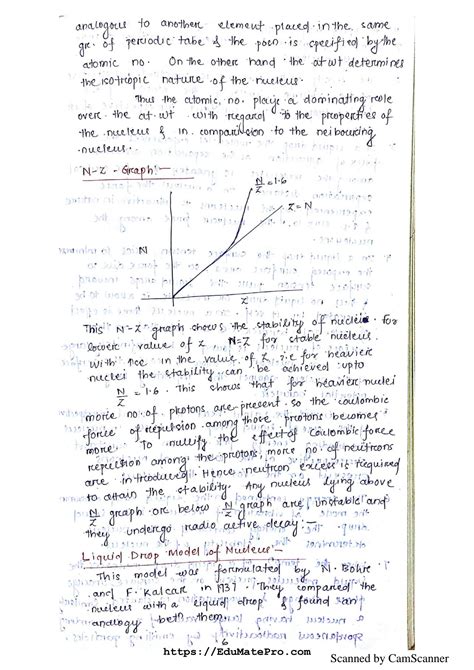 analogous to another element placed in the same
gr. of periodic table & the posn is specified by the
atomic no. On the other hand the at.wt determines
the isotropic nature of the nucleus.
Thus the atomic no. plays a dominating role
over the at.wt with regard to the properties of
the nucleus & in comparision to the neibouring
nucleus.
N-Z - Graph :-
N/Z = 1.6
Z = N
N
Z
This N-Z graph shows the stability of nuclei. For
lower value of Z N=Z for stable nucleus.
With rise in the value of Z i.e for heavier
nuclei the stability can be achieved upto
N/Z = 1.6. This shows that for heavier nulei
more no. of protons are present so the coulombic
force of repulsion among those protons becomes
more. To nullify the effect of coulombic force
repulsion among the protons, more no. of neutrons
are introduced. Hence neutron excess is required
to attain the stability. Any nucleus lying above
N/Z graph or below N/Z graph are unstable and
they undergo radio active decay :-
Liquid Drop Model of Nucleus -
This model was formulated by N. Bohr
and F. Kalcar in 1937. They compared the
nucleus with a liquid drop & found an
analogy betn them.
6
https://EduMatePro.com
Scanned by CamScanner